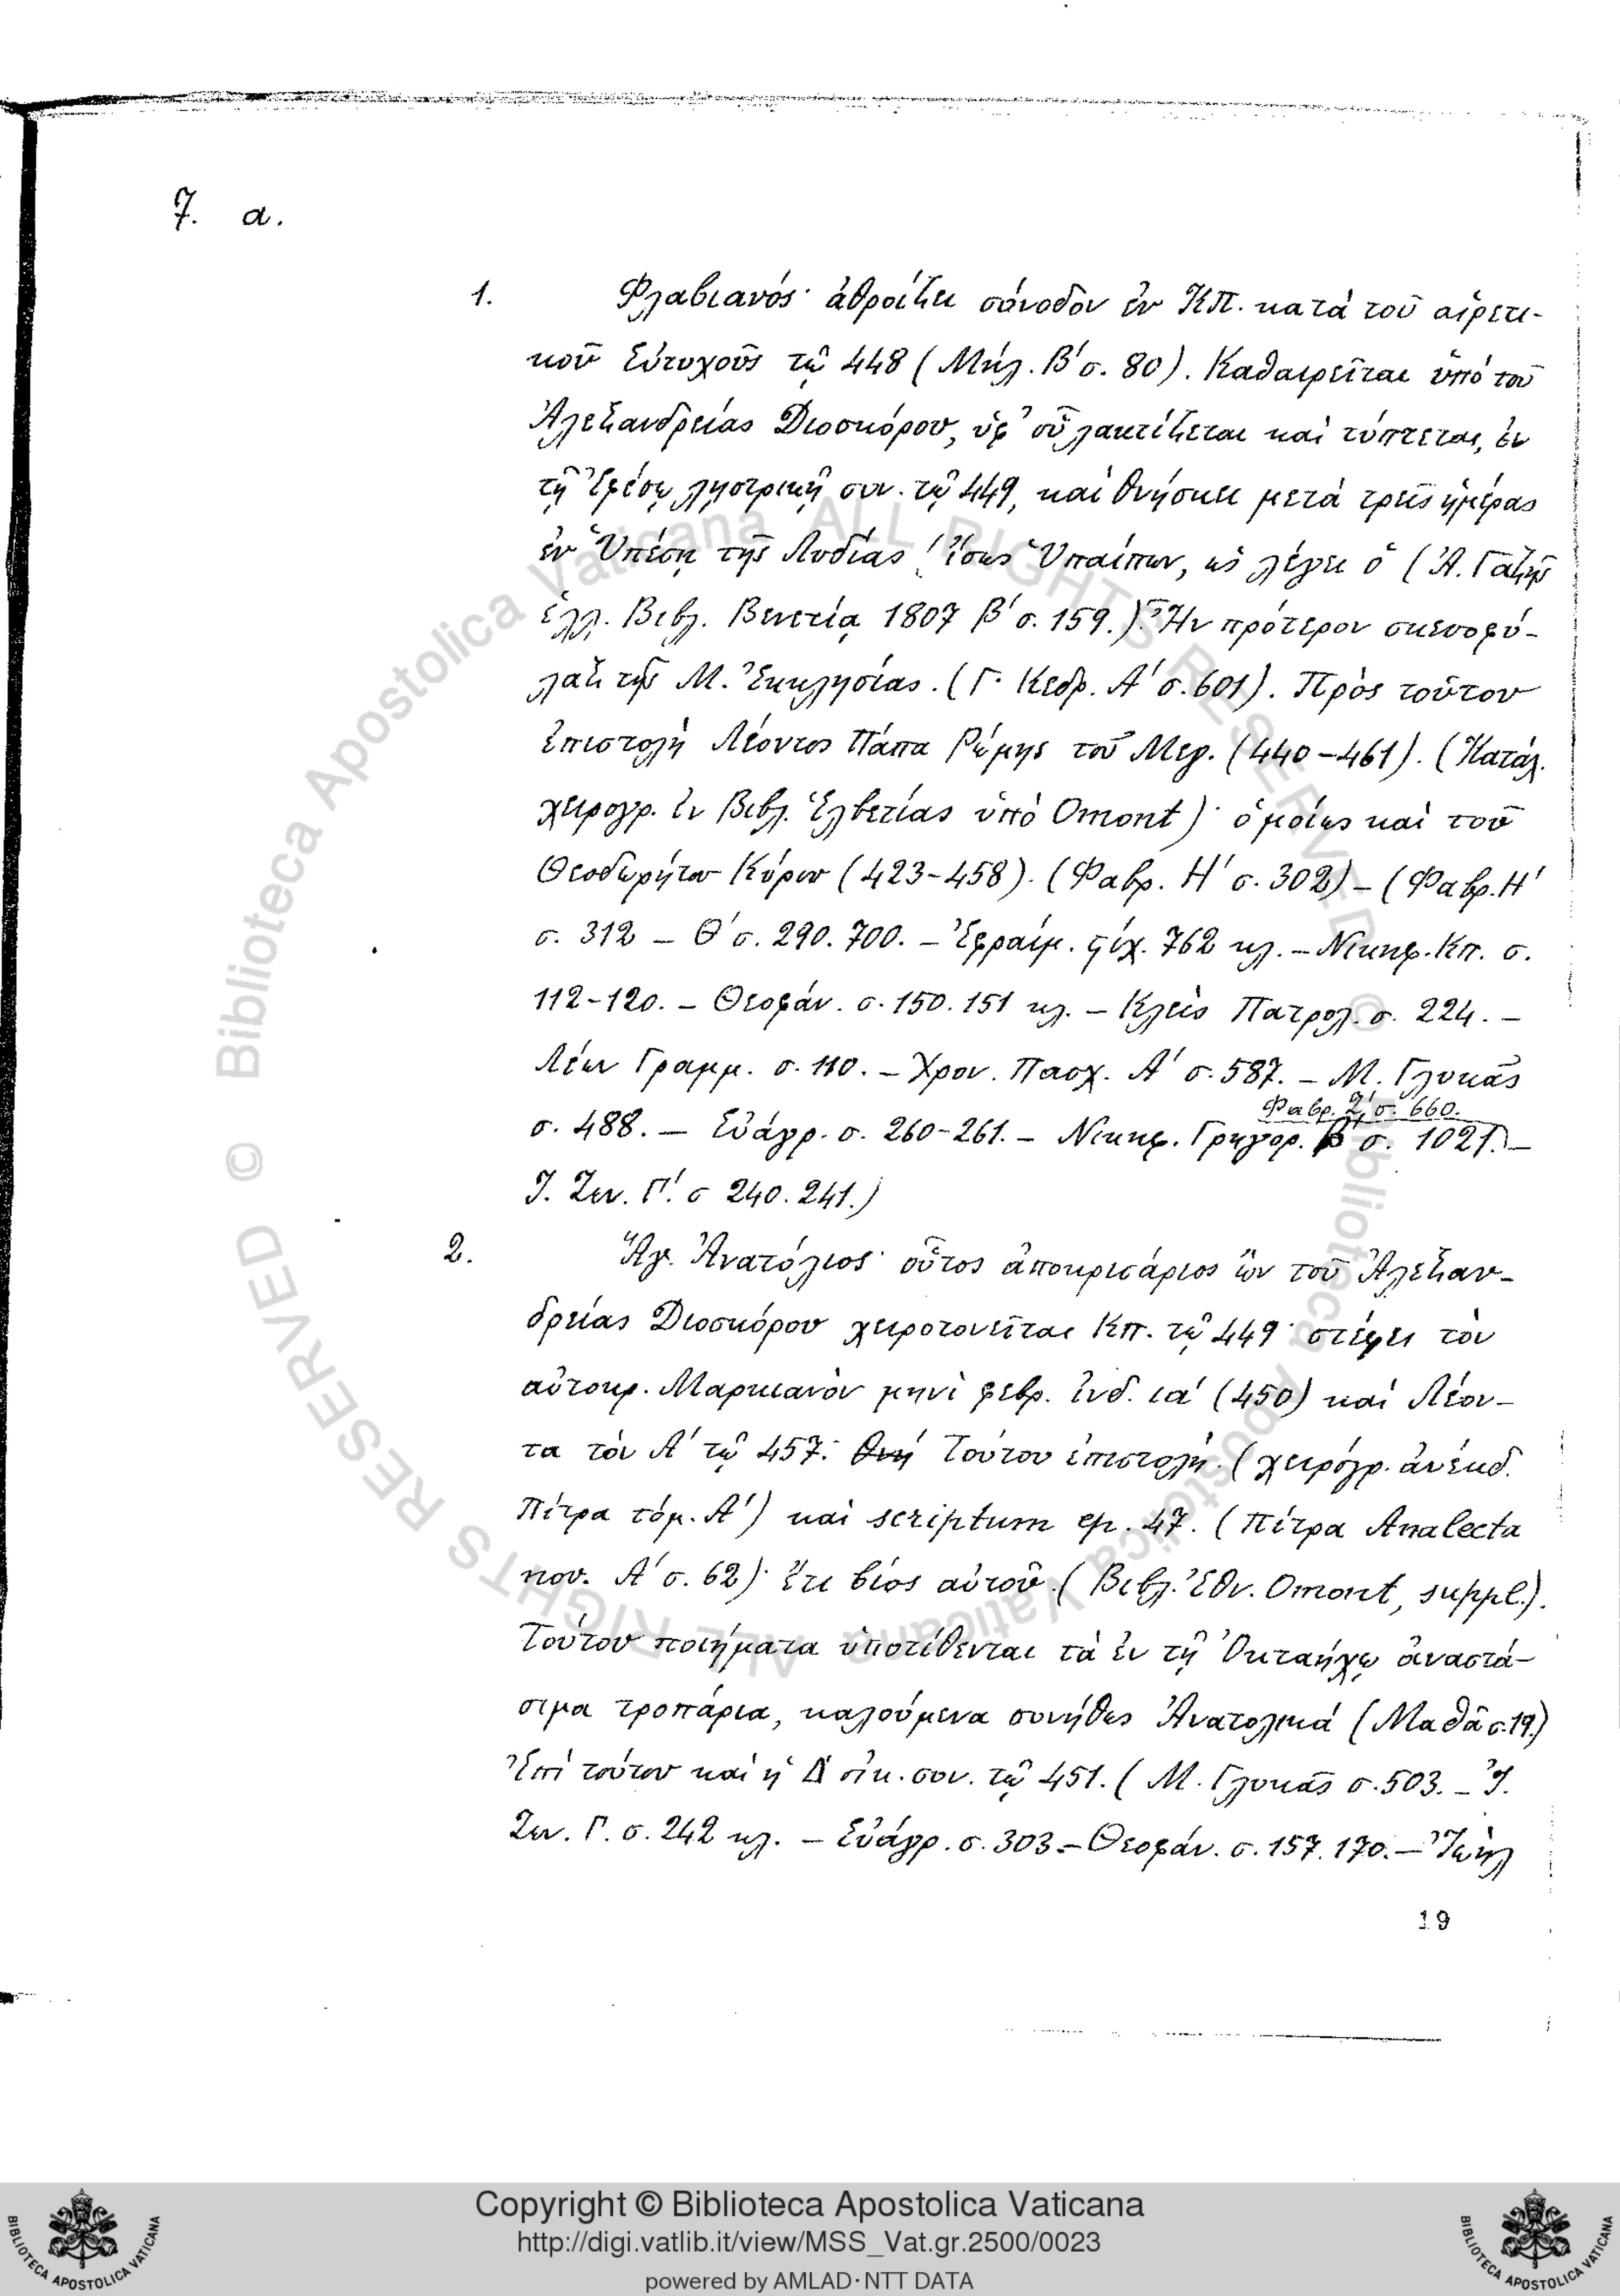 7. α.
1. Φλαβιανός· ἀθροίζει σύνοδον ἐν ΚΠ. κατὰ τοῦ αἱρετι-
κοῦ Εὐτυχοῦς τῷ 448 (Μήλ. Β΄ σ. 80). Καθαιρεῖται ὑπὸ τοῦ
Ἀλεξανδρείας Διοσκόρου, ὑφ᾿ οὗ λακτίζεται καὶ τύπτεται, ἐν
τῇ Ἐφέσῳ ληστρικῇ συν. τῷ 449, καὶ θνήσκει μετὰ τρεῖς ἡμέρας
ἐν Ὑπέσῃ τῆς Λυδίας (ἴσως Ὑπαίπων, ὡς λέγει ὁ (Ἀ. Γαζῆς
ἑλλ. Βιβλ. Βενετίᾳ 1807 β΄ σ. 159.). Ἦν πρότερον σκευοφύ-
λαξ τῆς Μ. Ἐκκλησίας. (Γ. Κεδρ. Α΄ σ. 601). Πρὸς τοῦτον
ἐπιστολὴ Λέοντος Πάπα Ρώμης τοῦ Μεγ. (440-461). (Κατάλ.
χειρογρ. ἐν Βιβλ. Ἑλβετίας ὑπὸ Omont)· ὁμοίως καὶ τοῦ
Θεοδωρήτου Κύρου (423-458). (Φαβρ. Η΄ σ. 302) – (Φαβρ. Η΄
σ. 312 – Θ΄ σ. 290. 700. – Ἐφραίμ. στίχ. 762 κλ. – Νικηφ. Κπ. σ.
112-120. – Θεοφάν. σ. 150. 151 κλ. – Κλεὶς Πατρολ. σ. 224. –
Λέων Γραμμ. σ. 110. – Χρον. Πασχ. Α΄ σ. 587. – Μ. Γλυκᾶς
Φαβρ. Ζ΄ σ. 660.
σ. 488. – Εὐάγρ. σ. 260-261. – Νικηφ. Γρηγορ. Β΄ σ. 1021. –
Ἰ. Ζων. Γ΄. σ 240. 241.)
2. Ἅγ. Ἀνατόλιος· οὗτος ἀποκρισάριος ὢν τοῦ Ἀλεξαν-
δρείας Διοσκόρου χειροτονεῖται Κπ. τῷ 449· στέφει τὸν
αὐτοκρ. Μαρκιανὸν μηνὶ φεβρ. ἰνδ. ια΄ (450) καὶ Λέον-
τα τὸν Α΄ τῷ 457. Τούτου ἐπιστολή. (χειρόγρ. ἀνέκδ.
Πίτρα τόμ. Α΄) καὶ scriptum ep. 47. (Πίτρα Analecta
nov. Α΄ σ. 62)· ἔτι βίος αὐτοῦ. (Βιβλ. Ἐθν. Omont, suppl.).
Τούτου ποιήματα ὑποτίθενται τὰ ἐν τῇ Ὀκταήχῳ ἀναστά-
σιμα τροπάρια, καλούμενα συνήθως Ἀνατολικά (Μαθᾶ σ. 19.)
Ἐπὶ τούτου καὶ ἡ Δ΄ οἰκ. συν. τῷ 451. (Μ. Γλυκᾶς σ. 503. – Ἰ.
Ζων. Γ. σ. 242 κλ. – Εὐάγρ. σ. 303 – Θεοφάν. σ. 157. 170. – Ἰωὴλ
19
© Biblioteca Apostolica Vaticana ALL RIGHTS RESERVED © Biblioteca Apostolica Vaticana ALL RIGHTS RESERVED
Copyright © Biblioteca Apostolica Vaticana
http://digi.vatlib.it/view/MSS_Vat.gr.2500/0023
powered by AMLAD·NTT DATA
BIBLIOTECA APOSTOLICA VATICANA
BIBLIOTECA APOSTOLICA VATICANA